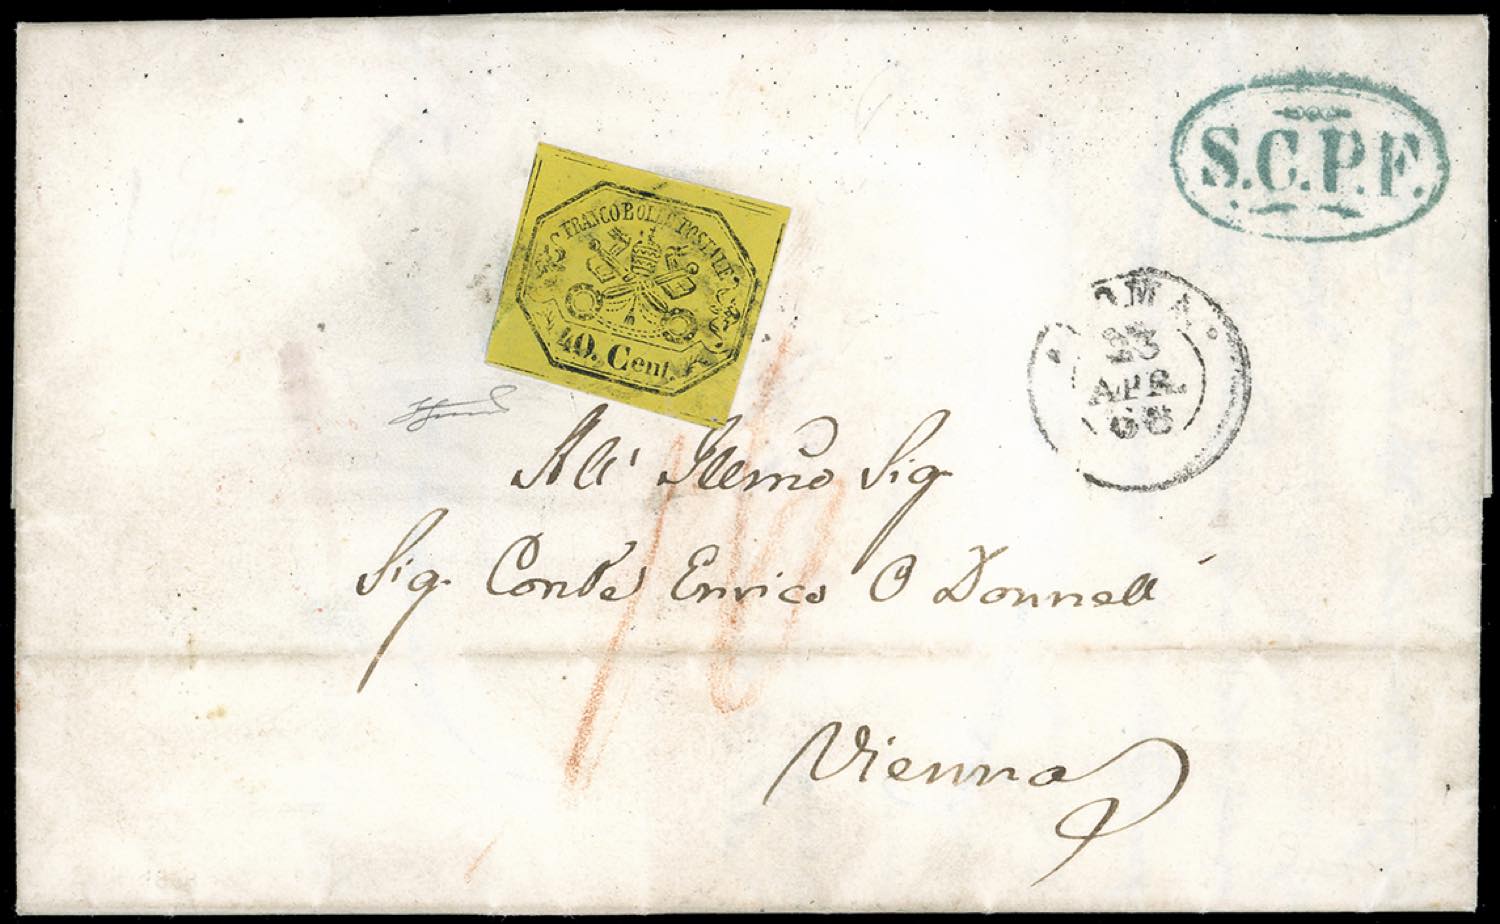 S.C.P.F.
FRANCOBOLLO POSTALE
40. Cent.
ROMA
23
APR.
68
All' Illmo Sig
Sig. Conte Enrico O Donnell
Vienna